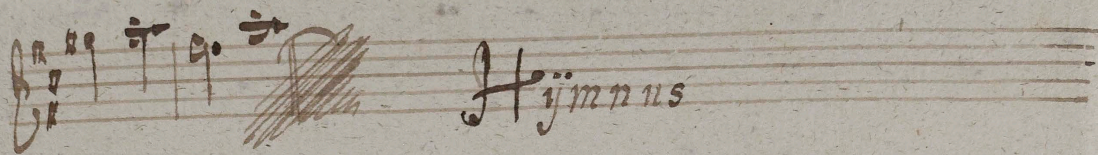 Hÿmnus